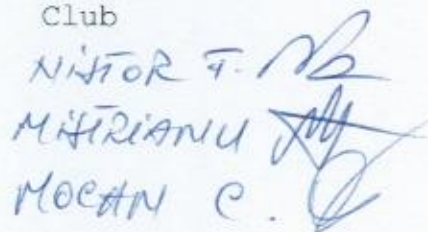 Club
NISTOR F.
MISTRIANU
MOCAN C.